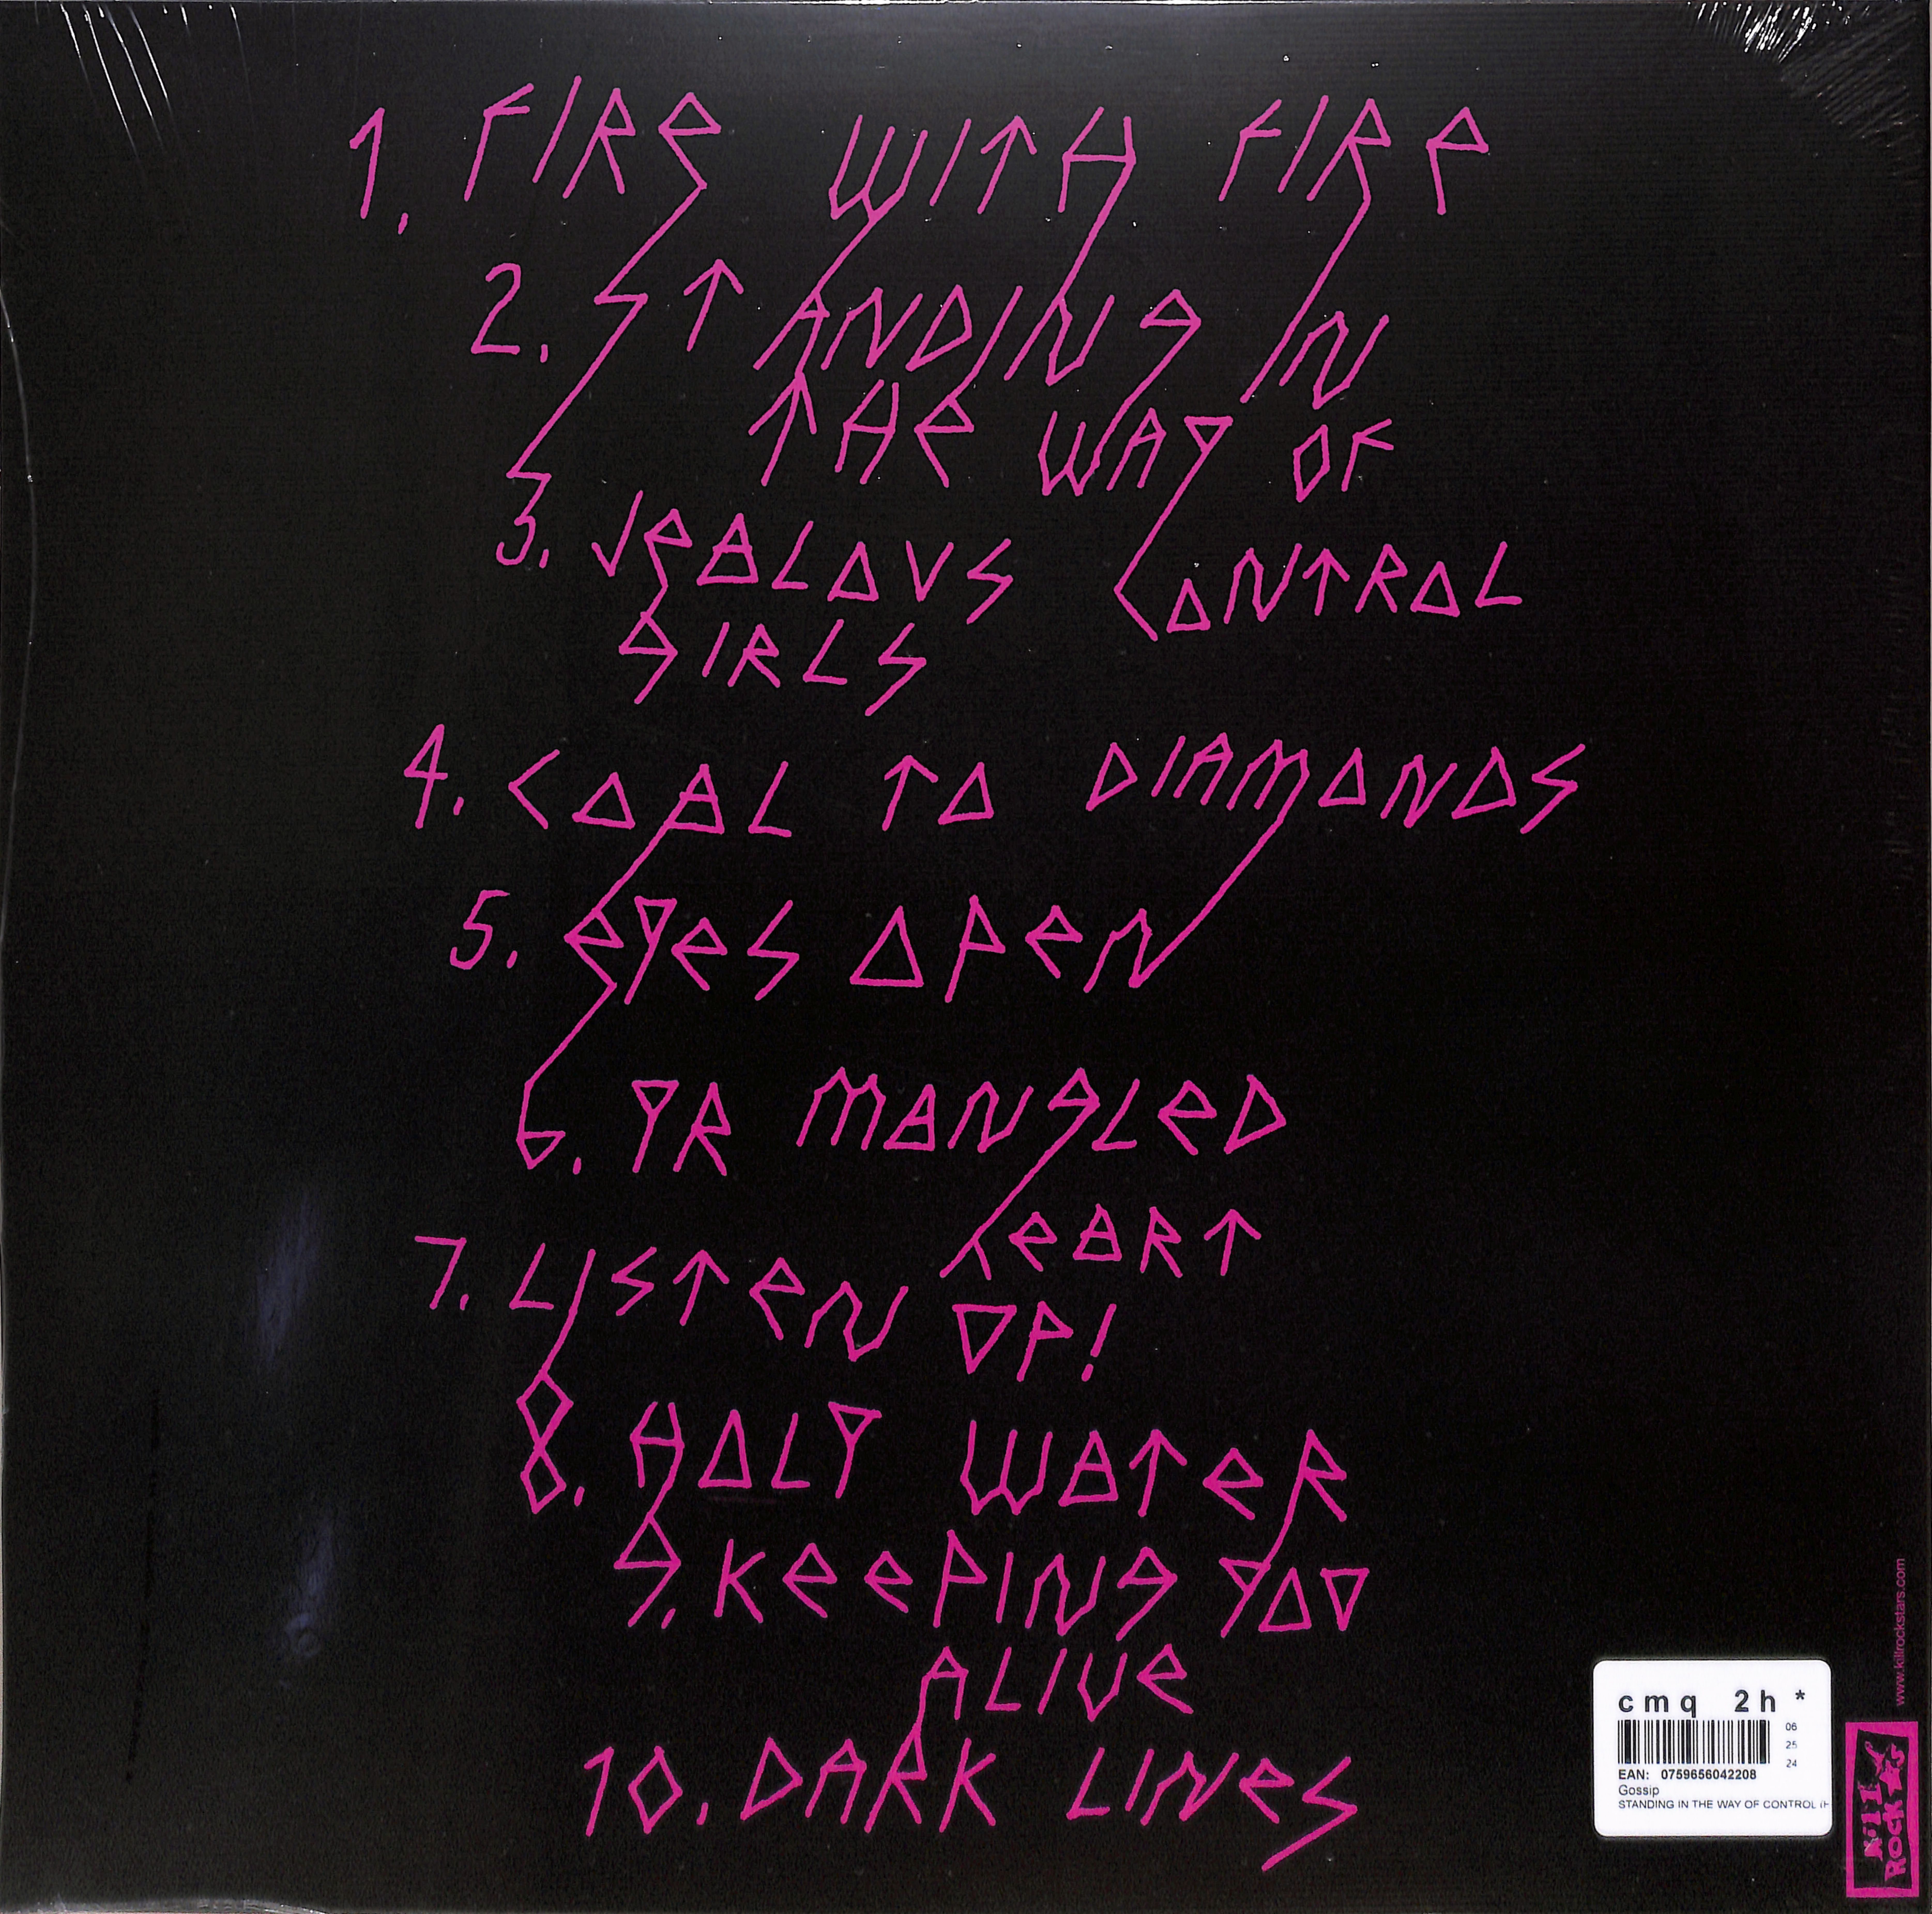 1. FIRE WITH FIRE
2. STANDING IN
THE WAY OF
CONTROL
3. JEALOUS
GIRLS
4. COAL TO DIAMONDS
5. EYES OPEN
6. YR MANGLED
HEART
7. LISTEN UP!
8. HOLY WATER
9. KEEPING YOU
ALIVE
10. DARK LINES
www.killrockstars.com
cmq 2h *
06
25
24
EAN: 0759656042208
Gossip
STANDING IN THE WAY OF CONTROL (H
KILL
ROCK ★S